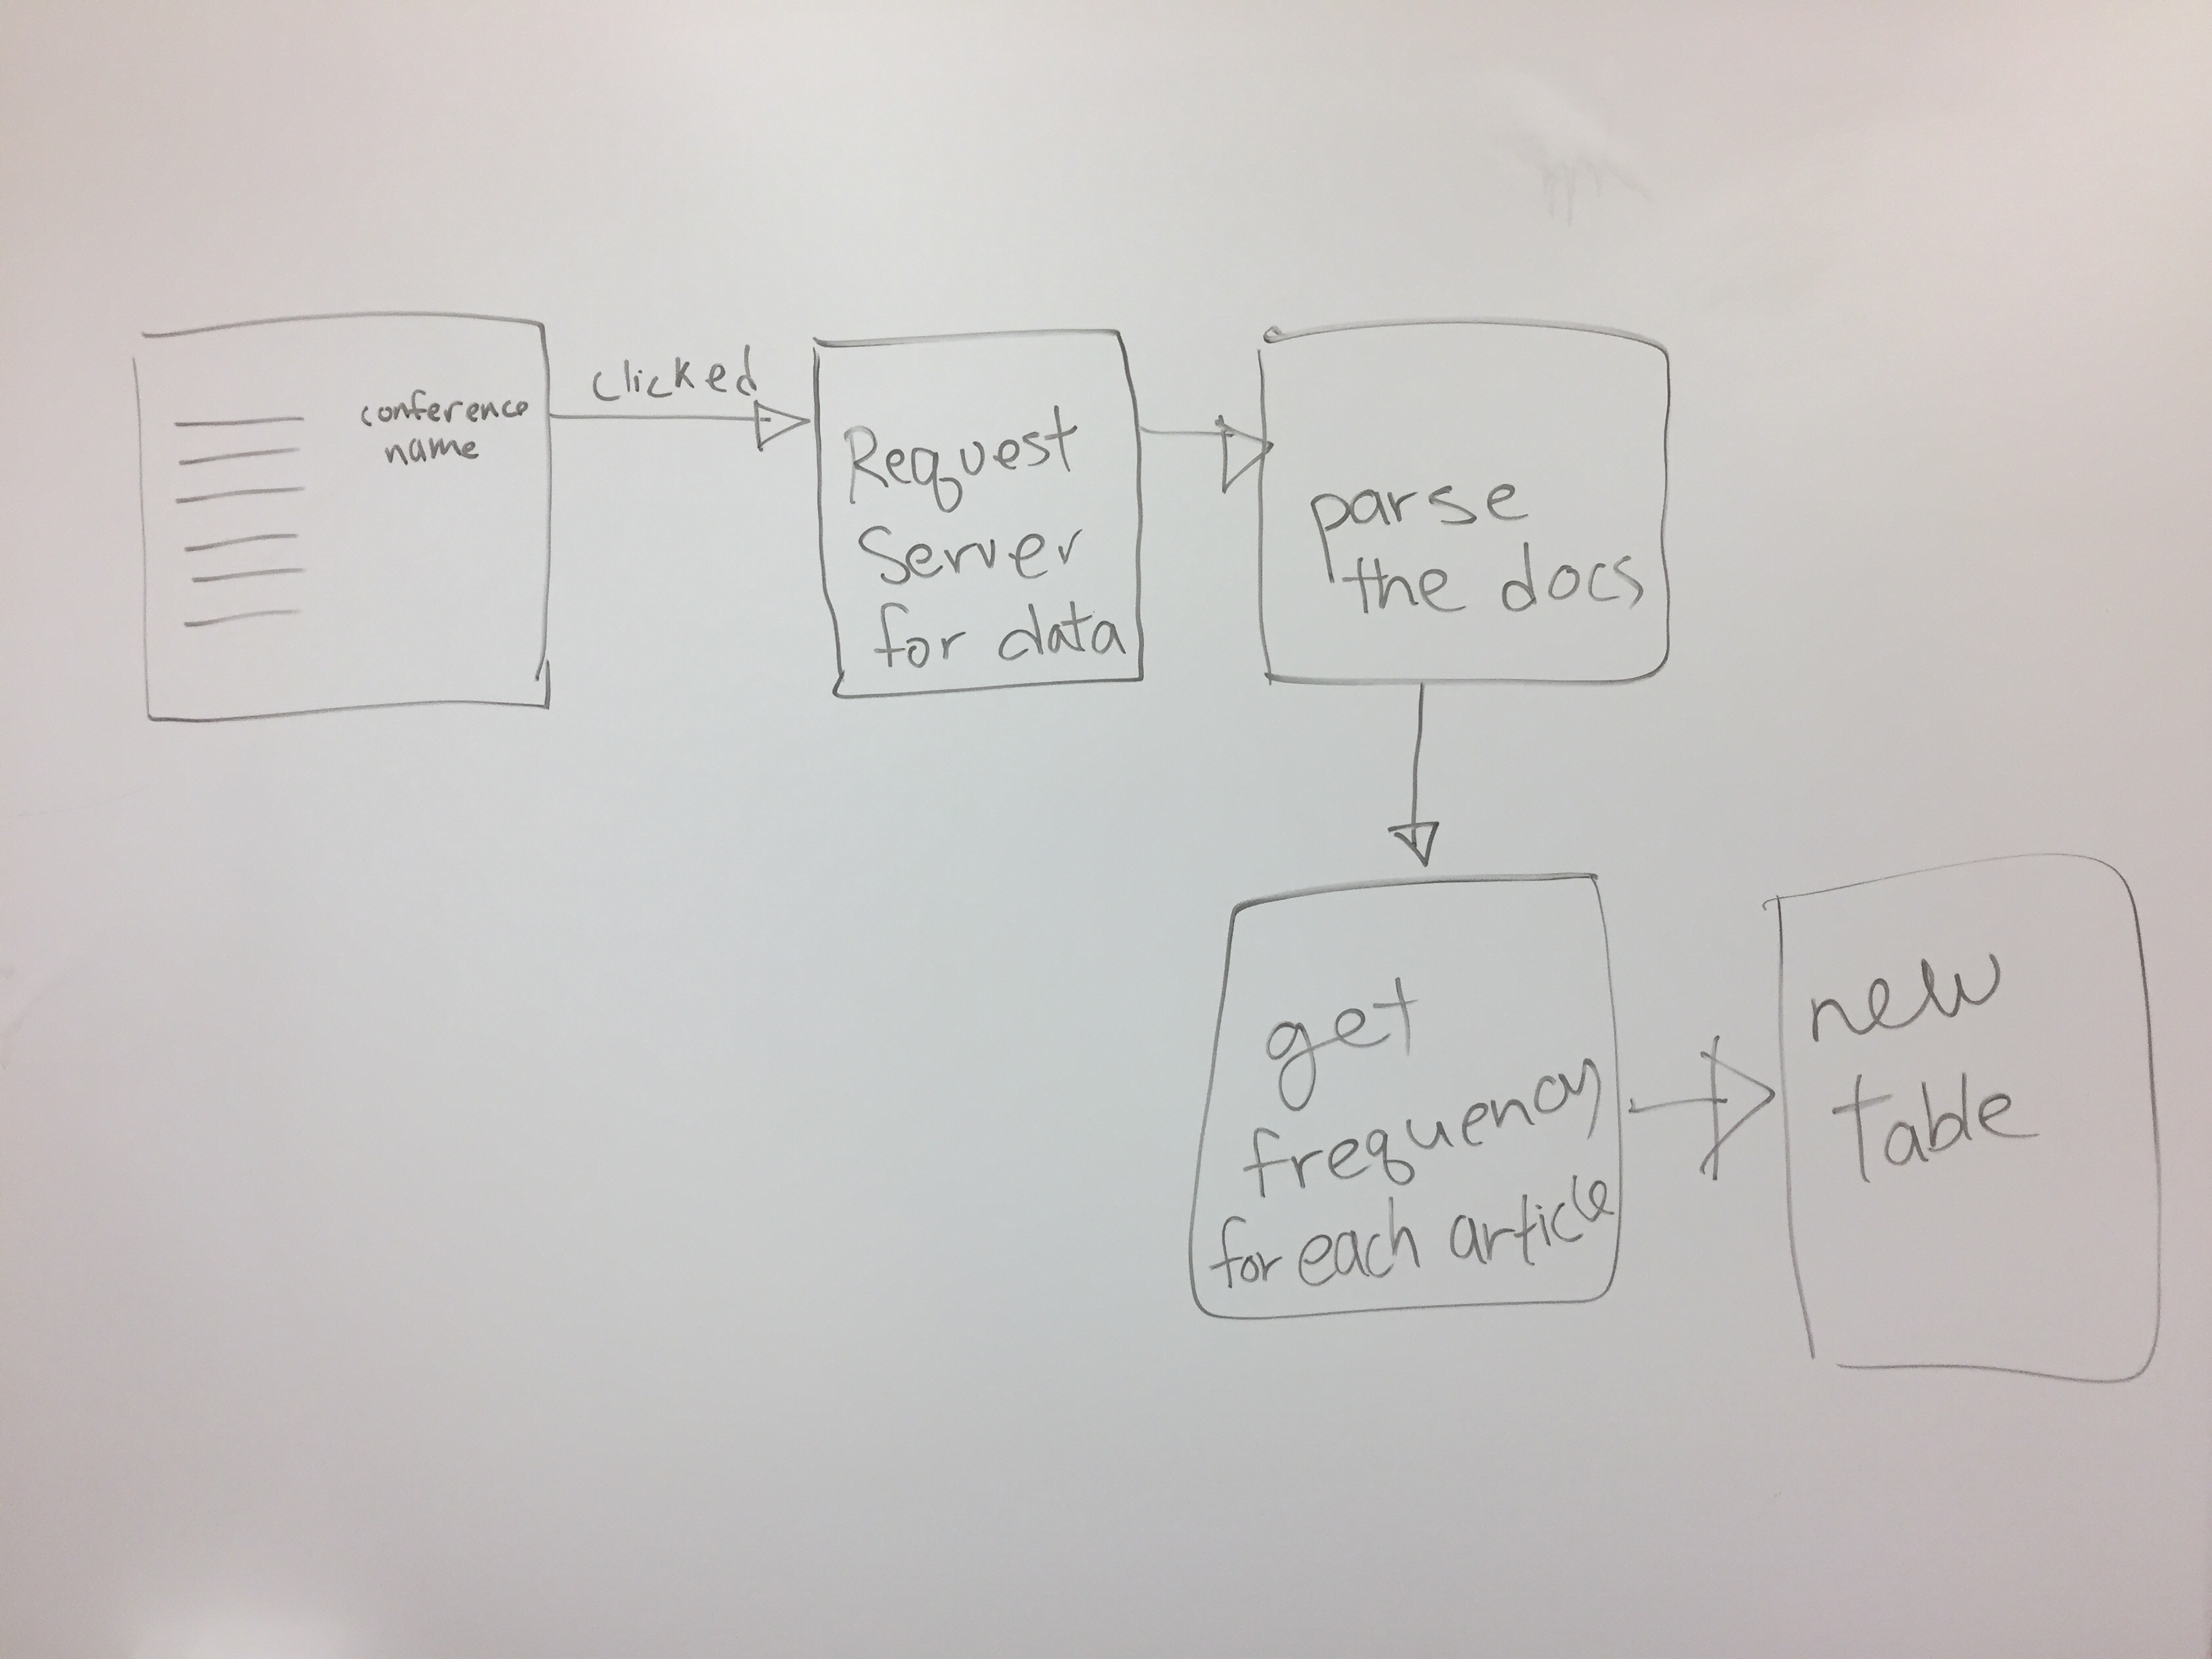 conference
name
clicked
Request
Server
for data
parse
the docs
get
frequency
for each article
new
table